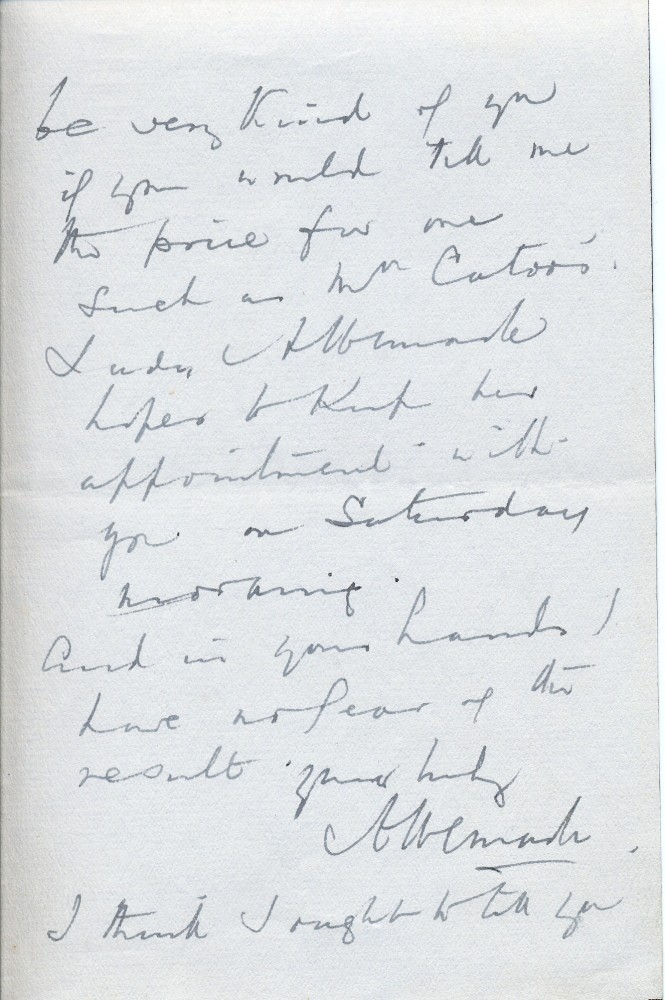 be very kind of you
if you would tell me
the price for one
such as Mrs Cator's.
Lady Albemarle
hopes to keep her
appointment with
you on Saturday
morning.
And in your hands I
have no fear of the
result yours truly
Albemarle.
I think I ought to tell you